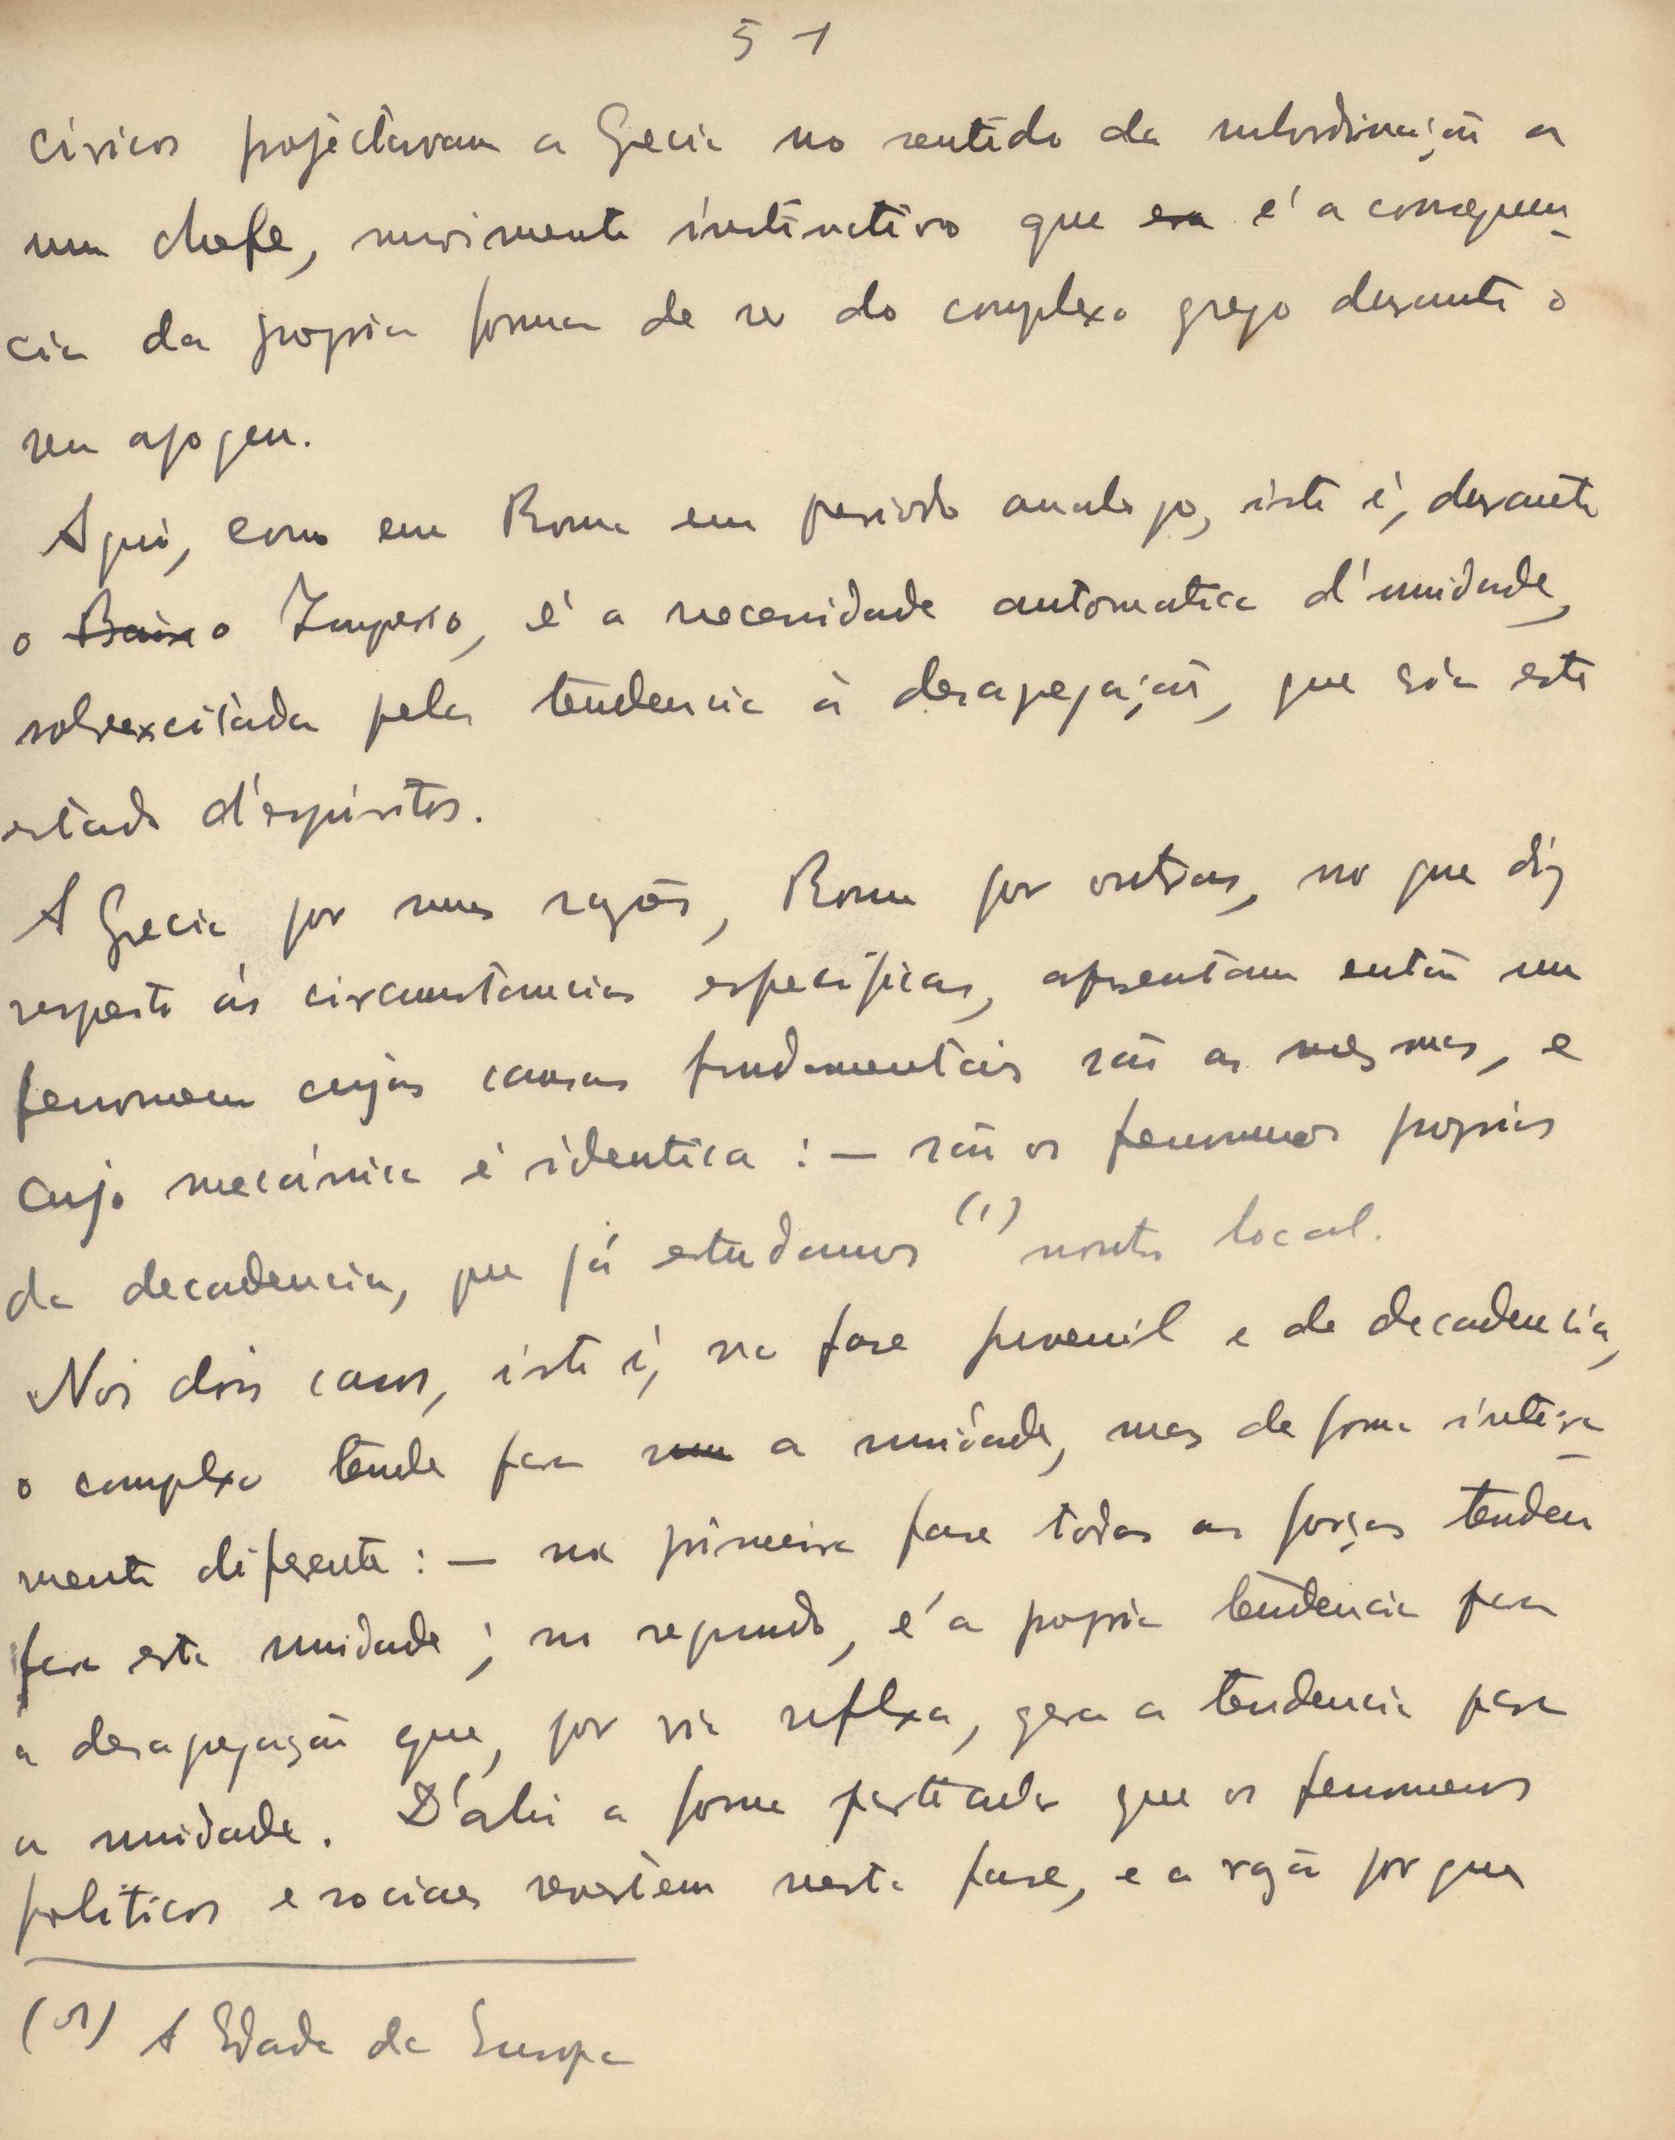 51
civicos projéctavam a Grecia no sentido da subordinação a
um chefe, movimento instinctivo que era é a consequen-
cia da propria forma de ser do complexo grego durante o
seu apogeu.
Aqui, como em Roma em periodo analogo, isto é, durante
o Baixo Imperio, é a necessidade automatica d'unidade,
sobrexcitada pela tendencia á desagregação, que cria este
estado d'espiritos.
A Grecia por umas razões, Roma por outras, no que diz
respeito ás circumstancias especificas, apresentam então um
fenomeno cujas causas fundamentais são as mesmas, e
cujo mecánica é identica : — são os fenomenos proprios
da decadencia, que já estudamos (1) noutro local.
Nos dois casos, isto é, na fase juvenil e de decadencia,
o complexo tende para uma a unidade, mas de forma inteira-
mente diferente : — na primeira fase todas as forças tendem
para esta unidade ; na segunda, é a propria tendencia para
a desagregação que, por via reflexa, gera a tendencia para
a unidade. D'ahi a forma particular que os fenomenos
politicos e sociaes revestem nesta fase, e a razão por que
(1) A Edade da Europa